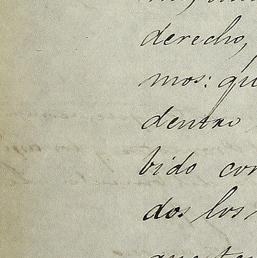 derecho,
mos: qu
dentro
bido con
dos los